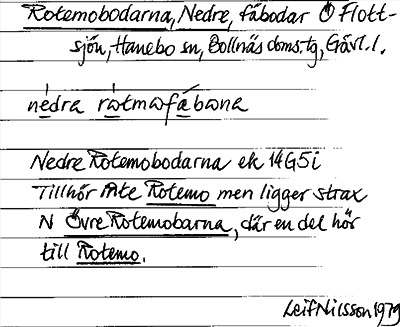 Rotemobodarna, Nedre, fäbodar Ö Flott-
sjön, Hanebo sn, Bollnäs doms:tg, Gävl. l.
nedra ratmafábana
Nedre Rotemobodarna ek 14G5i
Tillhör inte Rotemo men ligger strax
N Övre Rotemobarna, där en del hör
till Rotemo.
Leif Nilsson 1979